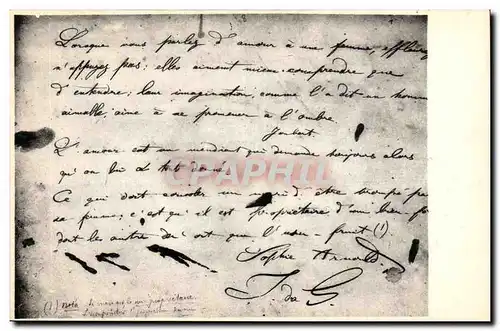 Lorsque vous parlez d'amour à une femme, effleurez
n'appuyez pas; elles aiment mieux comprendre que
d'entendre; leur imagination, comme l'a dit un homme
aimable, aime à se promener à l'ombre.
Joubert.
L'amour est un mendiant qui demande toujours alors
qu'on lui a tout donné.
Ce qui doit consoler un mari d'être trompé par
sa femme, c'est qu'il est propriétaire d'un bien
dont les autres n'ont que l'usu-fruit (1)
Sophie Arnould
J. da G.
(1) Nota
CPRAPHIL